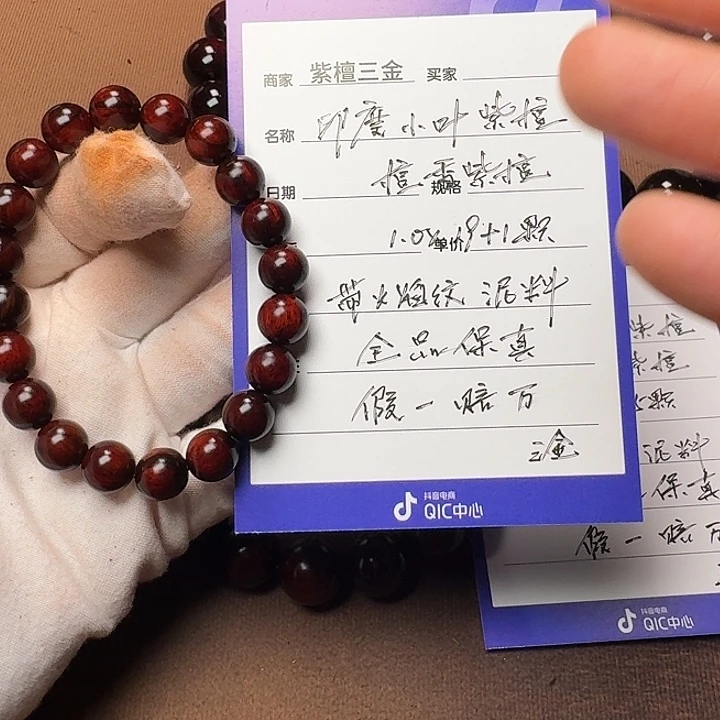 商家 紫檀三金 买家
名称 印度小叶紫檀
日期 檀香紫檀 规格
1.0 单价 9+1颗
带火焰纹泥料
全品保真
假一赔万
三金
抖音电商
QIC中心
紫檀
紫檀
颗
泥料
保真
假一赔万
抖音电商
QIC中心